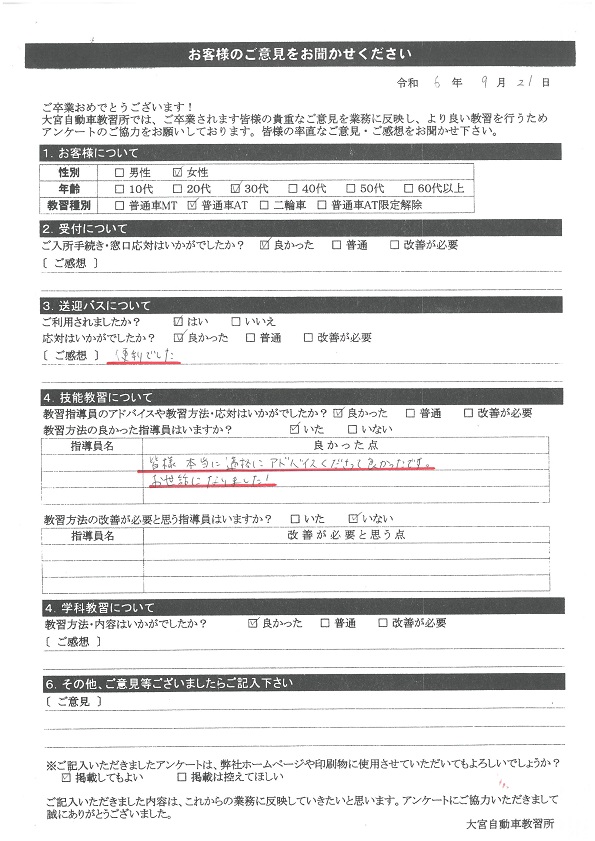 お客様のご意見をお聞かせください
令和 6 年 9 月 21 日
ご卒業おめでとうございます！
大宮自動車教習所では、ご卒業されます皆様の貴重なご意見を業務に反映し、より良い教習を行うため
アンケートのご協力をお願いしております。皆様の率直なご意見・ご感想をお聞かせ下さい。
1. お客様について
性別 □ 男性 ☑ 女性
年齢 □ 10代 □ 20代 ☑ 30代 □ 40代 □ 50代 □ 60代以上
教習種別 □ 普通車MT ☑ 普通車AT □ 二輪車 □ 普通車AT限定解除
2. 受付について
ご入所手続き・窓口応対はいかがでしたか？ ☑ 良かった □ 普通 □ 改善が必要
〔 ご感想 〕
3. 送迎バスについて
ご利用されましたか？ ☑ はい □ いいえ
応対はいかがでしたか？ ☑ 良かった □ 普通 □ 改善が必要
〔 ご感想 〕 便利でした
4. 技能教習について
教習指導員のアドバイスや教習方法・応対はいかがでしたか？ ☑ 良かった □ 普通 □ 改善が必要
教習方法の良かった指導員はいますか？ ☑ いた □ いない
指導員名 良かった点
皆様 本当に適格にアドバイスくださって良かったです。
お世話になりました！
教習方法の改善が必要と思う指導員はいますか？ □ いた ☑ いない
指導員名 改善が必要と思う点
4. 学科教習について
教習方法・内容はいかがでしたか？ ☑ 良かった □ 普通 □ 改善が必要
〔 ご感想 〕
6. その他、ご意見等ございましたらご記入下さい
〔 ご意見 〕
※ご記入いただきましたアンケートは、弊社ホームページや印刷物に使用させていただいてもよろしいでしょうか？
☑ 掲載してもよい □ 掲載は控えてほしい
ご記入いただきました内容は、これからの業務に反映していきたいと思います。アンケートにご協力いただきまして
誠にありがとうございました。
大宮自動車教習所